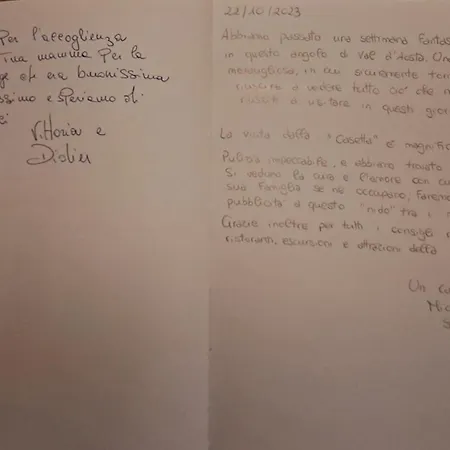 Per l'accoglienza
tua mamma per la
era buonissima
e speriamo di
Vittoria e
Didier
22/10/2023
Abbiamo passato una settimana fantas
in questo angolo di Val d'Aosta. Una
meravigliosa, in cui sicuramente tor
a vedere tutto ciò che n
a visitare in questi gior
La vista dalla "Casetta" è magnific
Pulizia impeccabile, e abbiamo trovato
Si vedono la cura e l'amore con cu
sua famiglia se ne occupano, faremo
pubblicità a questo "nido" tra i m
Grazie inoltre per tutti i consigli
ristoranti, escursioni e attrazioni della
Un ca
Mic
S